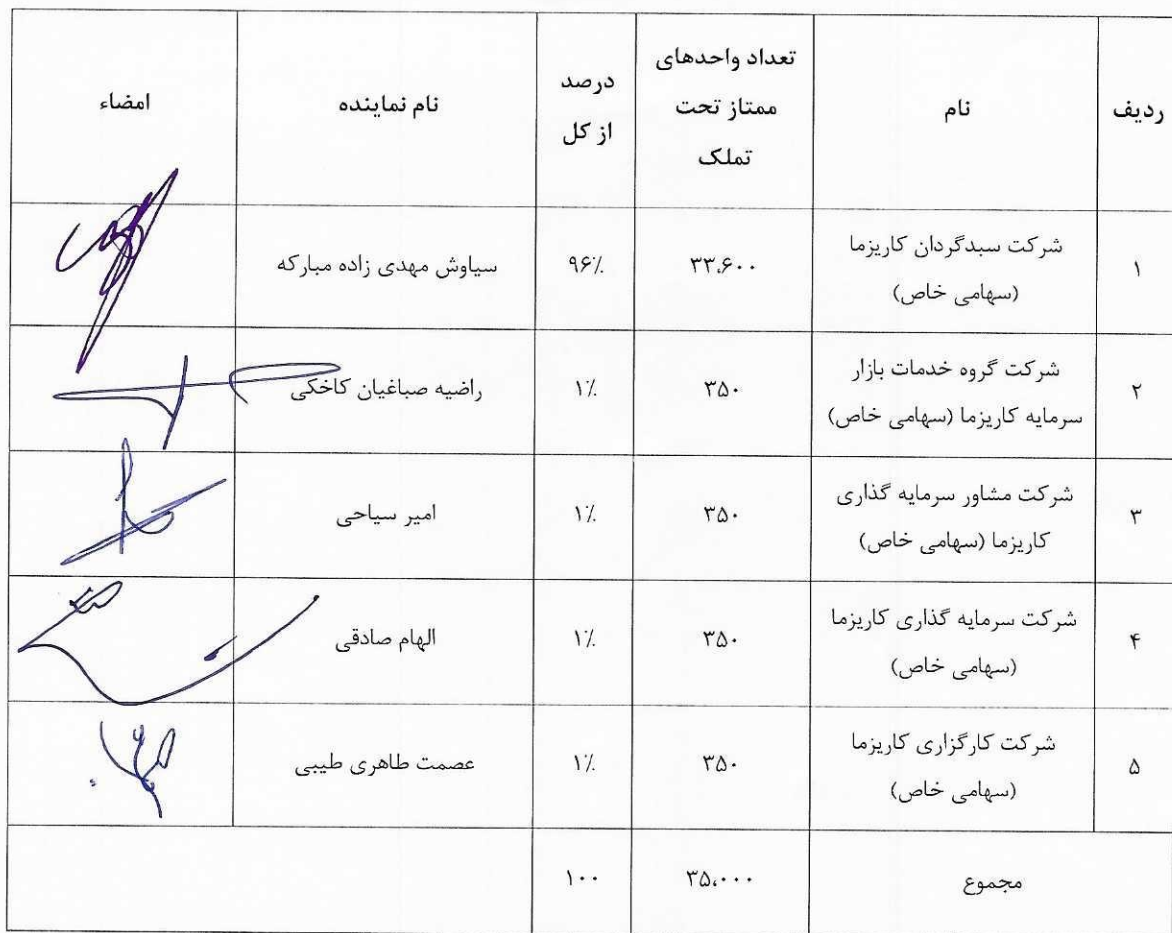 ردیف
نام
تعداد واحدهای
ممتاز تحت
تملک
درصد
از کل
نام نماینده
امضاء
۱
شرکت سبدگردان کاریزما
(سهامی خاص)
۳۳,۶۰۰
۹۶٪
سیاوش مهدی زاده مبارکه
۲
شرکت گروه خدمات بازار
سرمایه کاریزما (سهامی خاص)
۳۵۰
۱٪
راضیه صباغیان کاخکی
۳
شرکت مشاور سرمایه گذاری
کاریزما (سهامی خاص)
۳۵۰
۱٪
امیر سیاحی
۴
شرکت سرمایه گذاری کاریزما
(سهامی خاص)
۳۵۰
۱٪
الهام صادقی
۵
شرکت کارگزاری کاریزما
(سهامی خاص)
۳۵۰
۱٪
عصمت طاهری طیبی
مجموع
۳۵,۰۰۰
۱۰۰